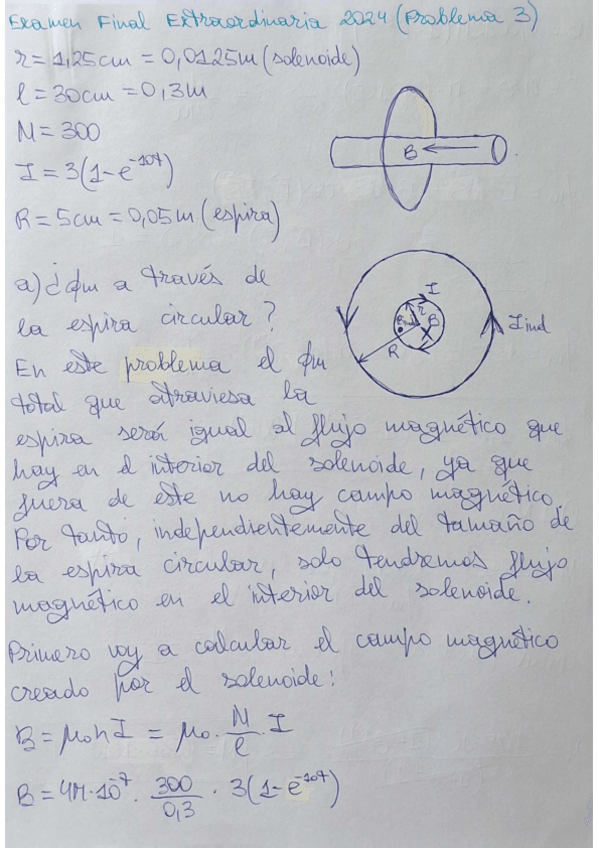 Examen Final Extraordinaria 2024 (Problema 3)
r = 1,25cm = 0,0125m (solenoide)
l = 30cm = 0,3m
N = 300
I = 3(1-e^-10t)
R = 5cm = 0,05m (espira)
B
a) ¿ϕm a través de
la espira circular?
I
r
B
R
Iind
En este problema el ϕm
total que atraviesa la
espira será igual al flujo magnético que
hay en el interior del solenoide, ya que
fuera de este no hay campo magnético.
Por tanto, independientemente del tamaño de
la espira circular, solo tendremos flujo
magnético en el interior del solenoide.
Primero voy a calcular el campo magnético
creado por el solenoide:
B = μo n I = μo · N/l · I
B = 4π·10^-7 · 300/0,3 · 3(1-e^-10t)